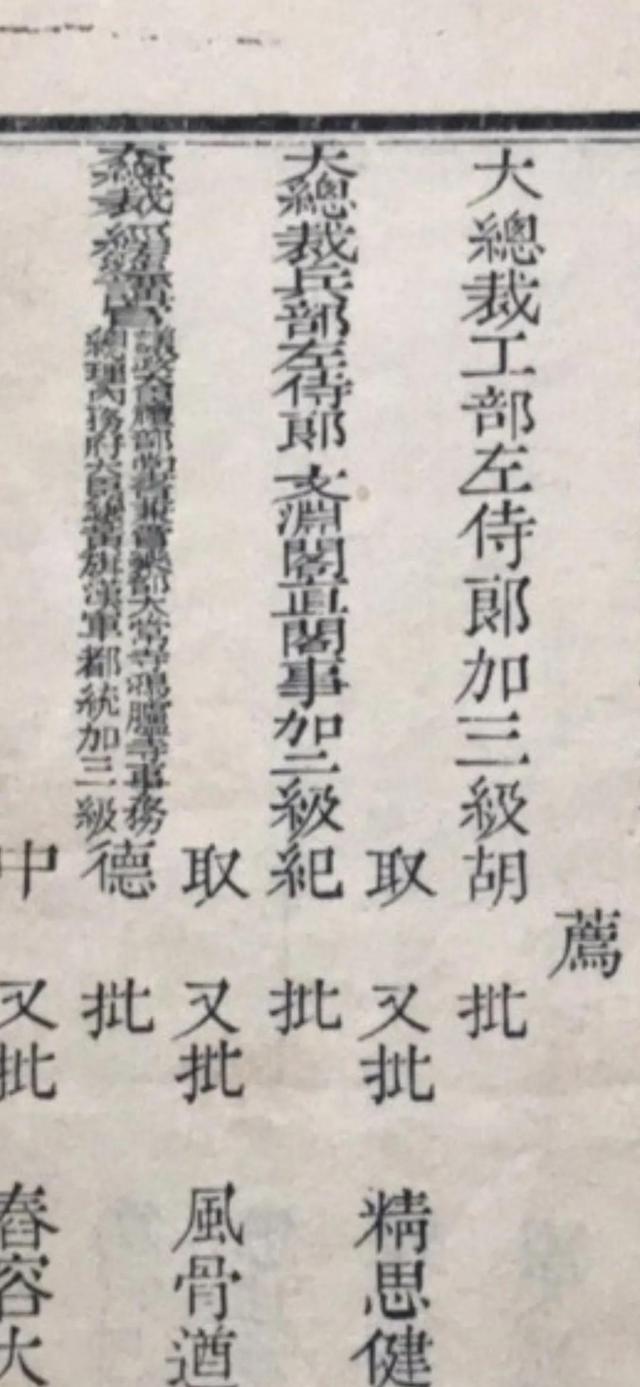 薦
大總裁工部左侍郎加三級胡 批
取 又批 精思健
大總裁兵部左侍郎文淵閣直閣事加二級紀 批
取 又批 風骨遒
大總裁經筵講官議政大臣禮部尚書兼管樂部太常寺鴻臚寺事務總理內務府大臣鑲黃旗漢軍都統加三級德 批
中 又批 舂容大